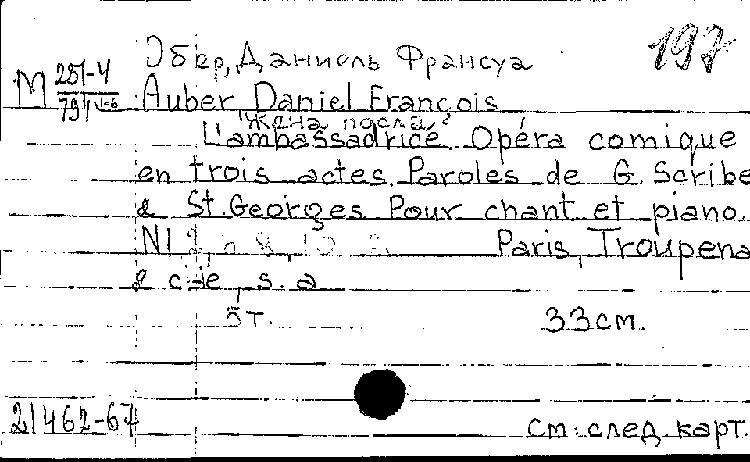 Обер, Даниель Франсуа
197
М 251-4
791
Auber Daniel François
"Жена посла"
L'ambassadrice. Opéra comique
en trois actes. Paroles de G. Scribe
& St. Georges. Pour chant et piano.
N1 Paris, Troupena
& cie, s. a
5т. 33см.
21462-67
см. след. карт.